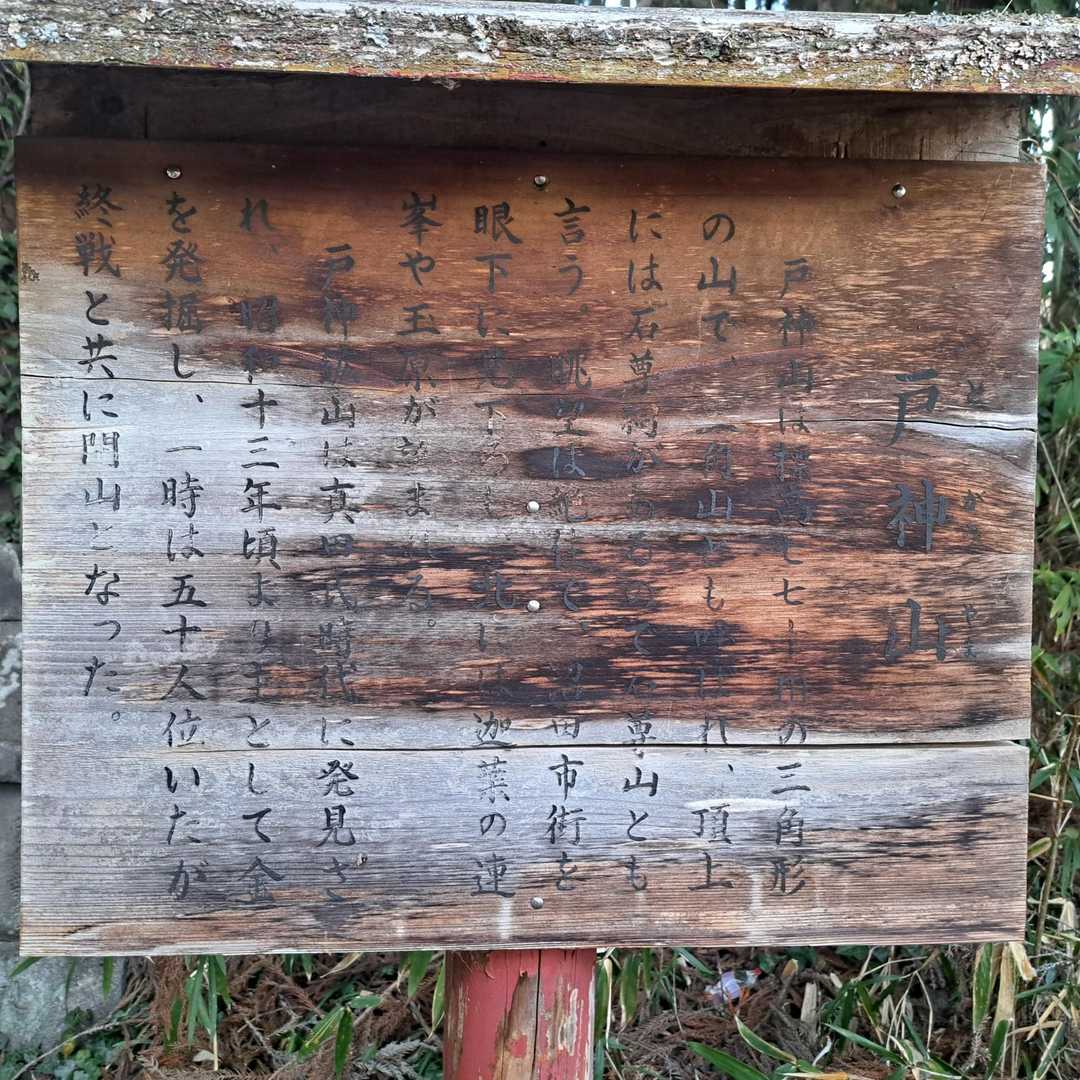 戸神山
とがみやま
戸神山は標高七七十米の三角形
の山で、三角山とも呼ばれ、頂上
には石尊祠があるので石尊山とも
言う。眺望は絶佳で、沼田市街を
眼下に見下ろし、北には迦葉の連
峯や玉原が望まれる。
戸神鉱山は真田氏時代に発見さ
れ、昭和十三年頃より主として金
を発掘し、一時は五十人位いたが
終戦と共に閉山となった。